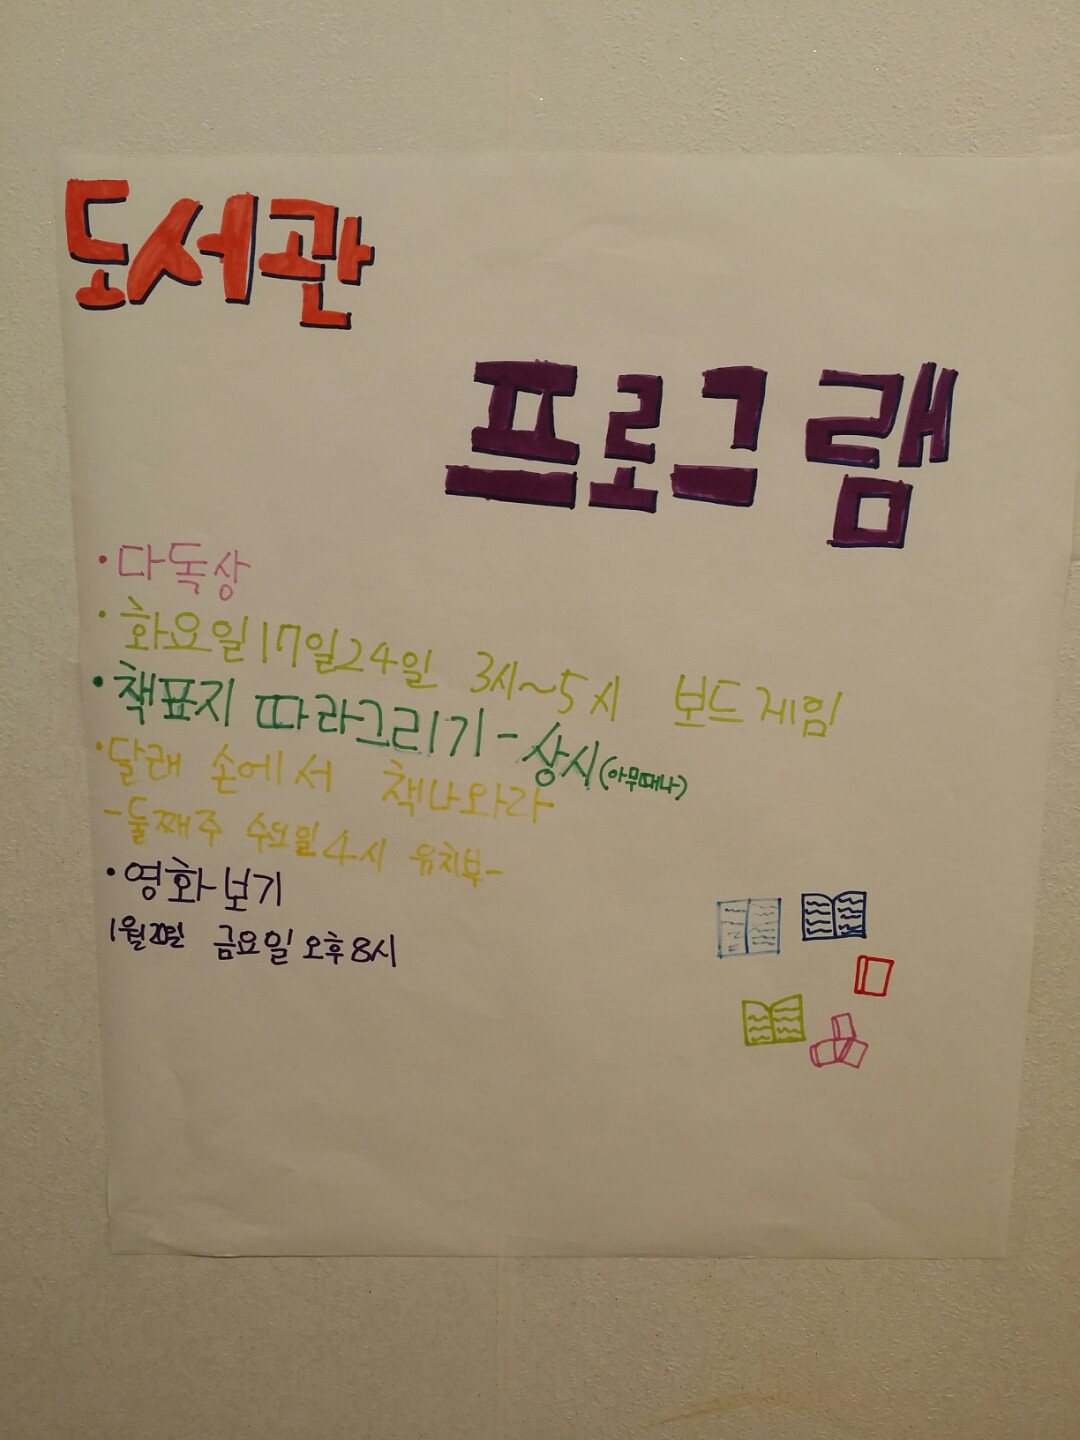 도서관
프로그램
· 다독상
· 화요일 17일 24일 3시~5시 보드게임
· 책표지 따라그리기 - 상시 (아무때나)
· 달래 손에서 책나와라
- 둘째주 수요일 4시 유치부 -
· 영화보기
1월 20일 금요일 오후 8시